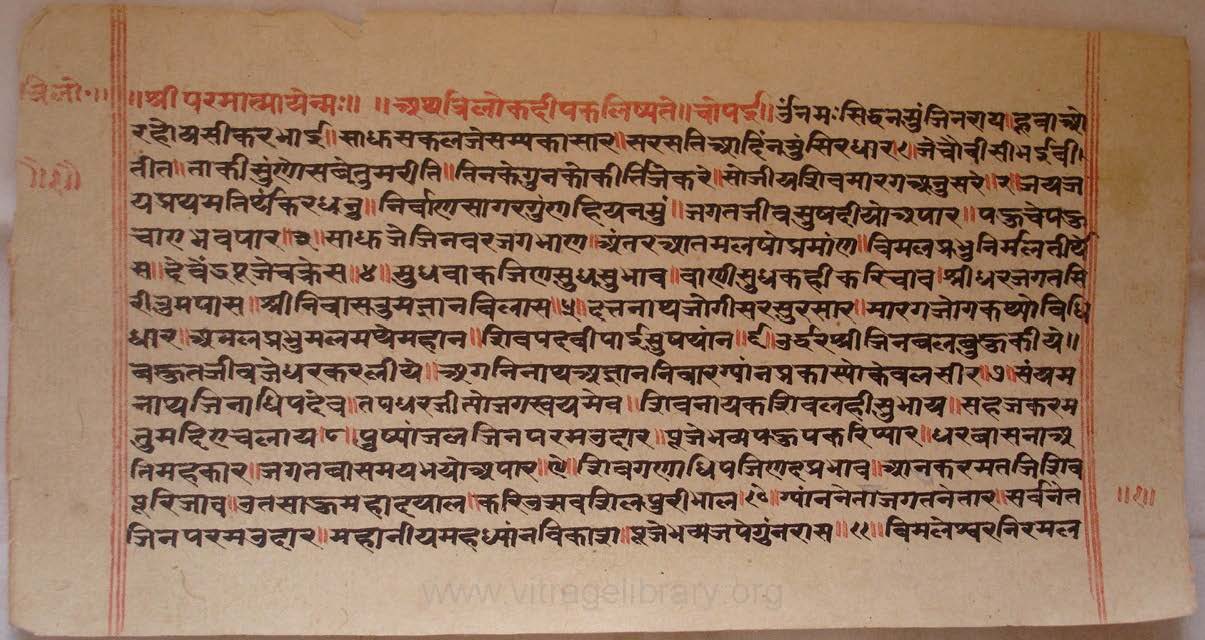 त्रिलो॰॥
॥श्री परमात्मायेन्मः॥ ॥अथत्रिलोकदीपकलिष्यते॥चोपई॥ उँनमःसिद्धनमुंजिनराय॥
रहोयसीकरभाई॥साधसकलजेसम्यकासार॥सरसतिआहिंनमुंसिरधार॥१॥जेचौवीसीभईवी
तीत॥ताकीसुंणोसबेतुमरीति॥तिनकेगुनकोकीर्तिजेकरे॥सोजीयशिवमारगअनुसरे॥२॥जयज
॥१॥
यप्रथमतिर्थंकरधनु॥निर्वाणसागरगुणहियनमुं॥जगतजीवसुषदीयोअपार॥
चाएभवपार॥३॥साधजेजिनवरजगभाण॥अंतरआतमलषोप्रमांण॥विमलप्रभुनिर्मलतीर्थे
स॥४॥सुधवाकजिणसुधसुभाव॥वाणीसुधकहीकरिचाव॥श्रीधरजगतसि
रीतुमपास॥श्रीनिवासतुमज्ञानविलास॥५॥दत्तनाथजोगीसरसुरसार॥मारगजोगकथ्योविधि
धार॥अमलप्रभुमलमथेमहान॥शिवपदवीपाईसुषथांन॥६॥उद्धरश्रीजिनवलबुहुकीये॥
बहुतजीवजेधरकरलीये॥अगनिनाथअज्ञाननिवार॥ग्यांनप्रकास्योकेवलसार॥७॥संयम
नाथजिनाधिपदेव॥तपधरजीतोजगस्वयमेव॥शिवनायकशिवलहीसुभाय॥सहजकरम
तुमहिणचलाय॥८॥पुष्पांजलजिनपरमउदार॥पूजेभव्यपहुपकरिप्यार॥धरवासनाअ
तिमहकार॥जगतवासमयभयोअपार॥९॥शिवगणाधिपजिणदप्रभाव॥ध्यानकरमतजिशिव
पूरिजाव॥उतसाहमहादयाल॥करिउत्सवशिलपुरीभाल॥१०॥ग्यांननेताजगतनेतार॥सर्वनेत
॥१॥
जिनपरमउदार॥महानीयमहध्यांनविकाश॥पूजेभव्यजपेगुंनरास॥११॥विमलेश्वरनिरमल
www.vitragelibrary.org